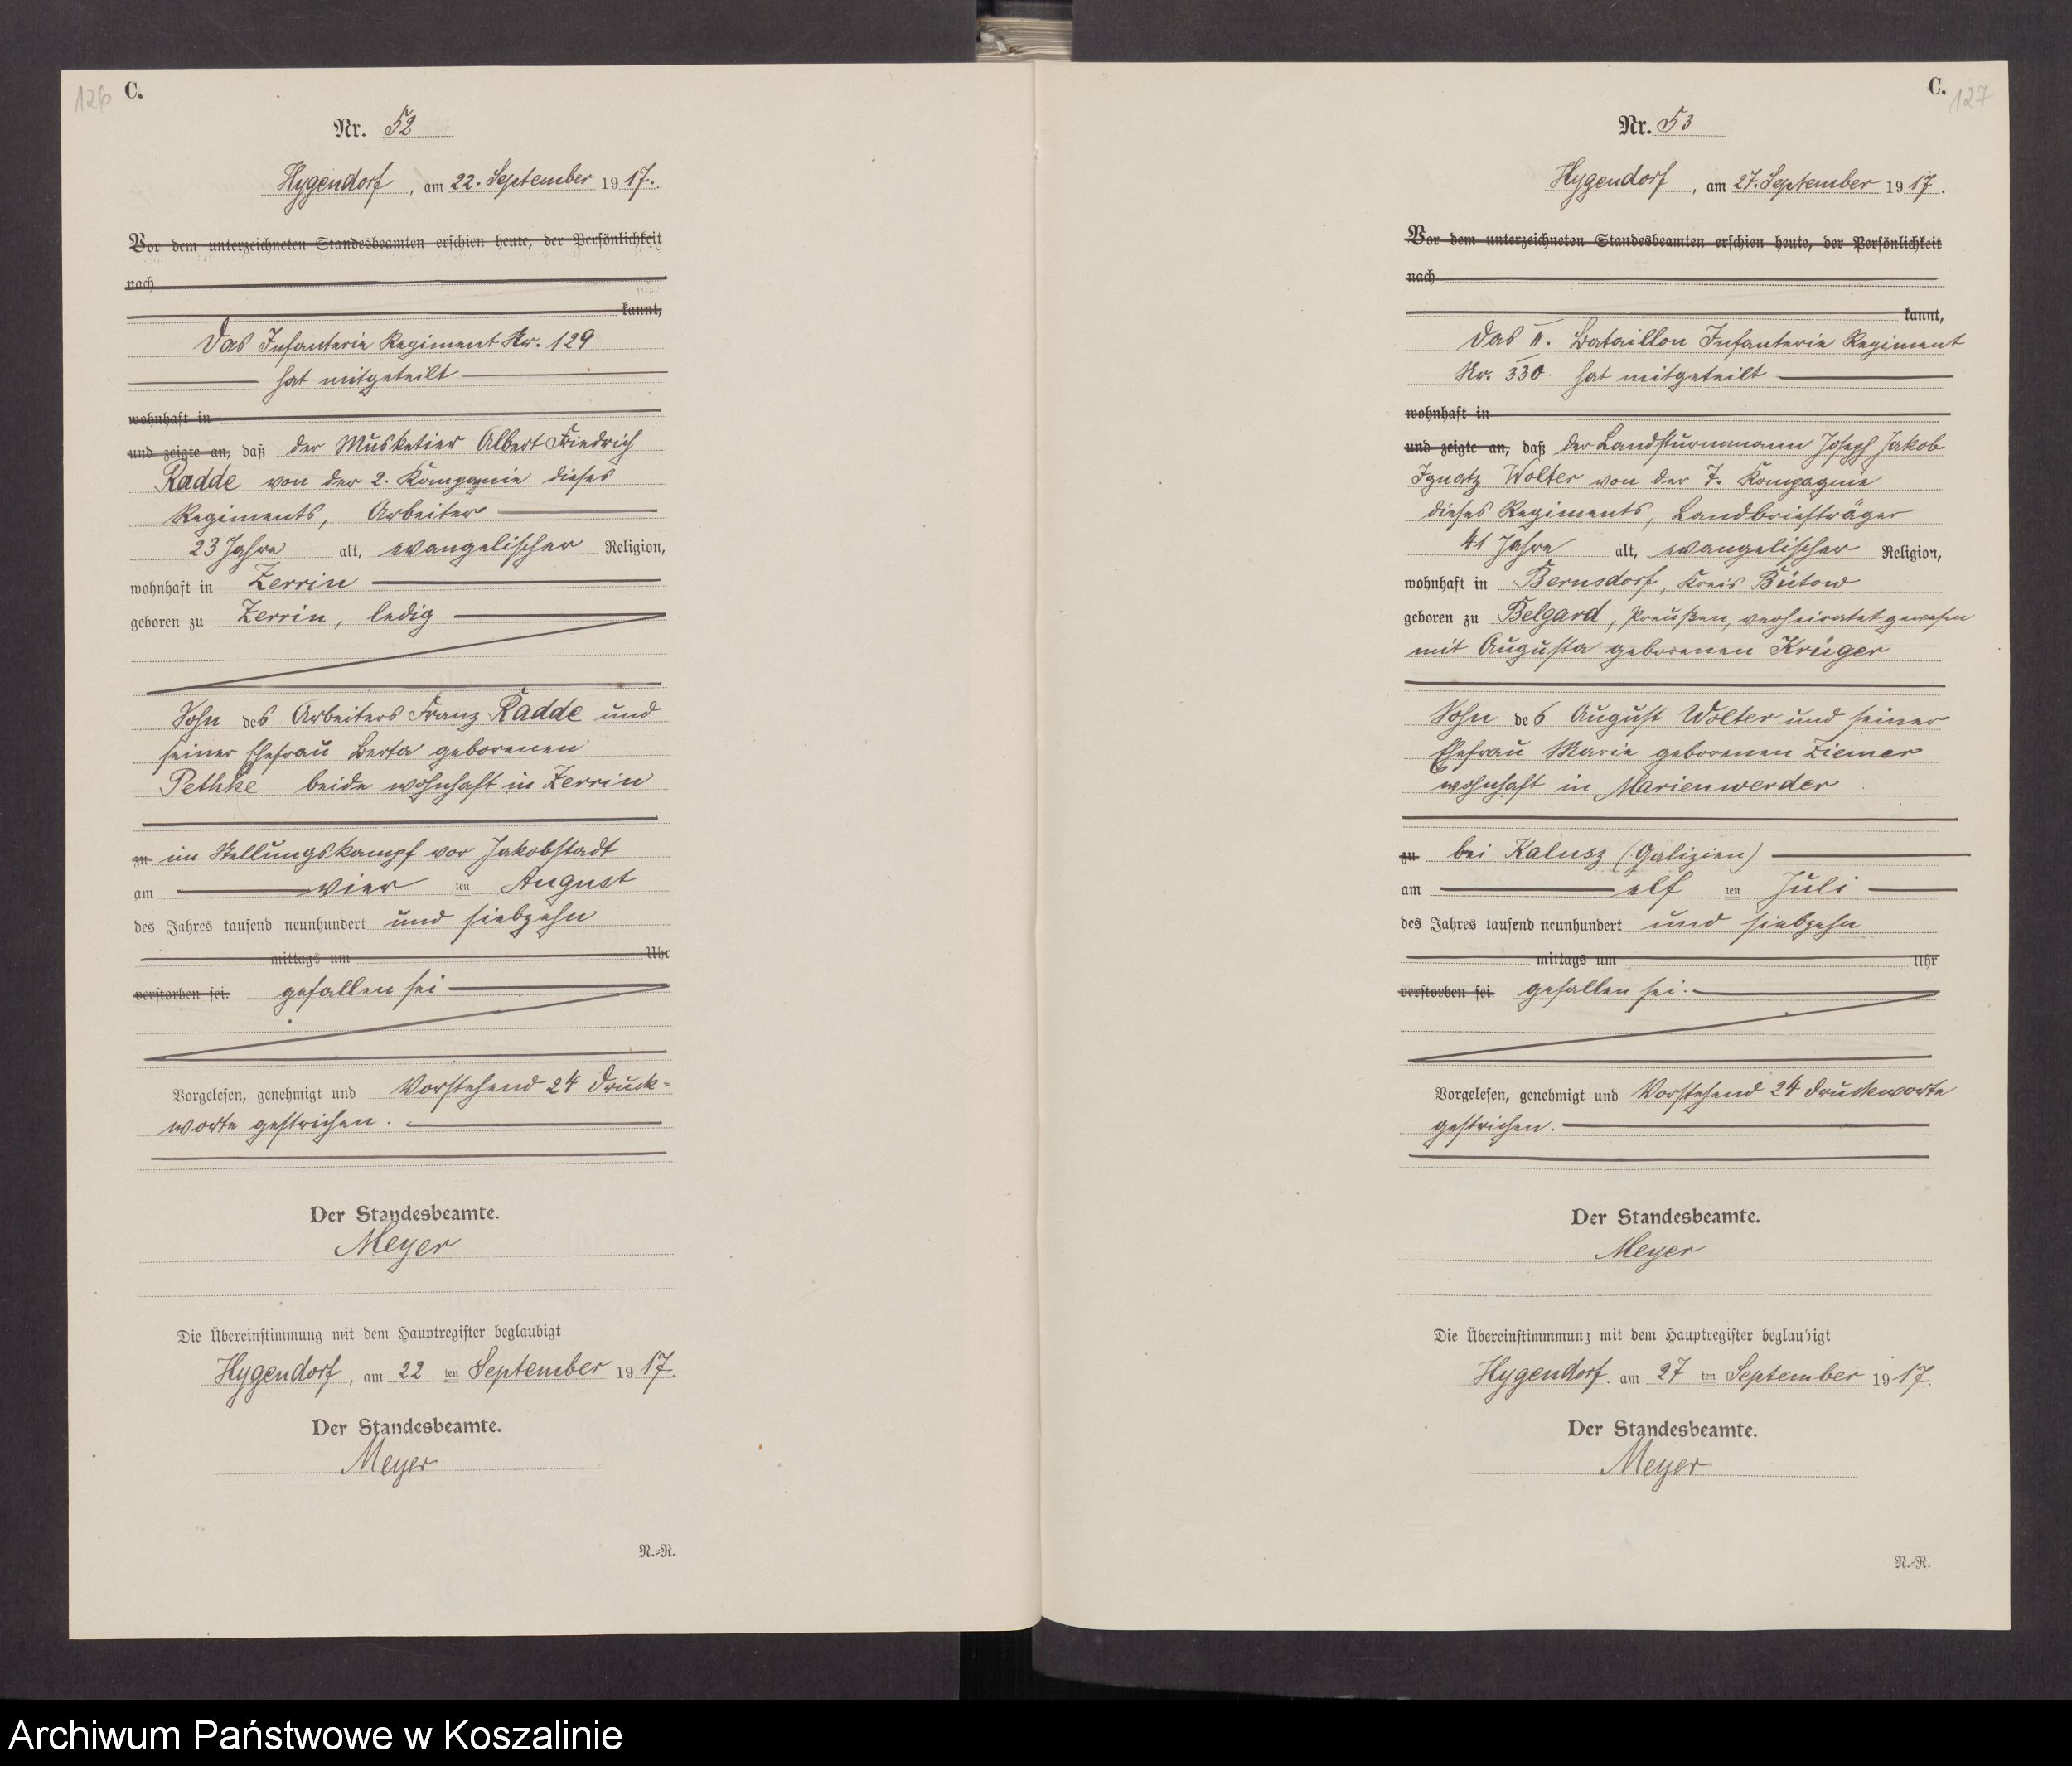 126 C.
Nr. 52
Hygendorf, am 22. September 1917.
Vor dem unterzeichneten Standesbeamten erschien heute, der Persönlichkeit
nach
kannt,
Das Infanterie Regiment Nr. 129
hat mitgeteilt
wohnhaft in
und zeigte an, daß der Musketier Albert Friedrich
Radde von der 2. Kompagnie dieses
Regiments, Arbeiter
23 Jahre alt, evangelischer Religion,
wohnhaft in Zerrin
geboren zu Zerrin, ledig
Sohn des Arbeiters Franz Radde und
seiner Ehefrau Berta geborenen
Pethke beide wohnhaft in Zerrin
zu im Stellungskampf vor Jakobstadt
am vier ten August
des Jahres tausend neunhundert und siebzehn
mittags um Uhr
verstorben sei. gefallen sei
Vorgelesen, genehmigt und Vorstehend 24 Druck-
worte gestrichen.
Der Standesbeamte.
Meyer
Die Übereinstimmung mit dem Hauptregister beglaubigt
Hygendorf, am 22 ten September 1917.
Der Standesbeamte.
Meyer
N.=R.
C. 127
Nr. 53
Hygendorf, am 27. September 1917.
Vor dem unterzeichneten Standesbeamten erschien heute, der Persönlichkeit
nach
kannt,
Das II. Bataillon Infanterie Regiment
Nr. 330 hat mitgeteilt
wohnhaft in
und zeigte an, daß der Landsturmmann Joseph Jakob
Ignatz Wolter von der 7. Kompagnie
dieses Regiments, Landbriefträger
41 Jahre alt, evangelischer Religion,
wohnhaft in Bernsdorf, Kreis Bütow
geboren zu Belgard, Preußen, verheiratet gewesen
mit Augusta geborenen Krüger
Sohn des August Wolter und seiner
Ehefrau Marie geborenen Ziemer
wohnhaft in Marienwerder
zu bei Kalusz (Galizien)
am elf ten Juli
des Jahres tausend neunhundert und siebzehn
mittags um Uhr
verstorben sei. gefallen sei.
Vorgelesen, genehmigt und Vorstehend 24 Druckworte
gestrichen.
Der Standesbeamte.
Meyer
Die Übereinstimmmung mit dem Hauptregister beglaubigt
Hygendorf. am 27 ten September 1917.
Der Standesbeamte.
Meyer
N.=R.
Archiwum Państwowe w Koszalinie